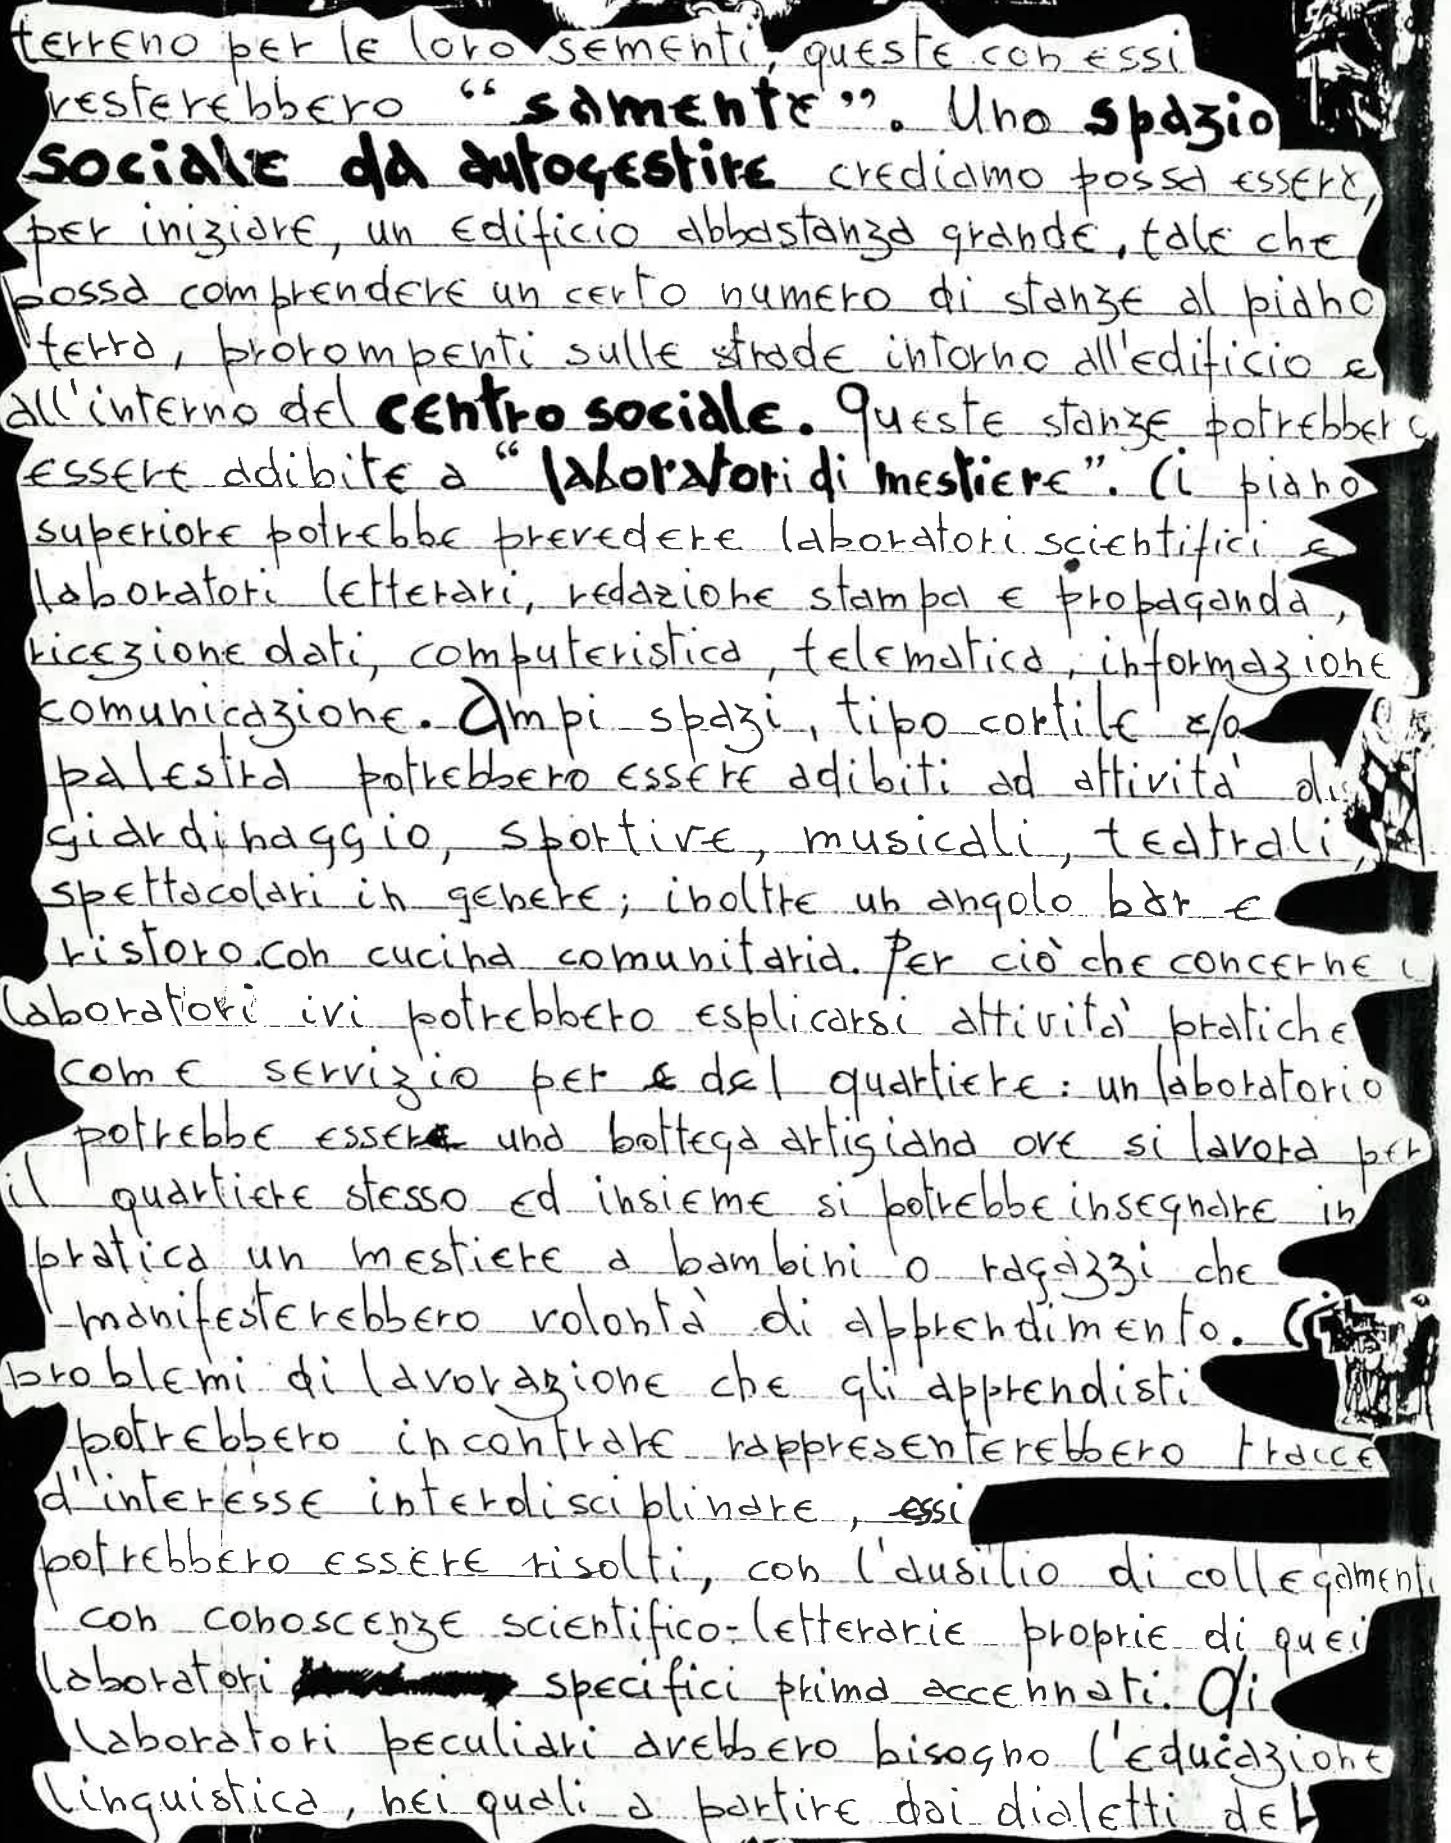 terreno per le loro sementi, queste con essi
resterebbero “samente”. Uno spazio
sociale da autogestire crediamo possa essere,
per iniziare, un edificio abbastanza grande, tale che
possa comprendere un certo numero di stanze al piano
terra, prorompenti sulle strade intorno all'edificio e
all'interno del centro sociale. Queste stanze potrebbero
essere adibite a “laboratori di mestiere”. Il piano
superiore potrebbe prevedere laboratori scientifici e
laboratori letterari, redazione stampa e propaganda,
ricezione dati, computeristica, telematica, informazione
comunicazione. Ampi spazi, tipo cortile e/o
palestra potrebbero essere adibiti ad attività di
giardinaggio, sportive, musicali, teatrali,
spettacolari in genere; inoltre un angolo bar e
ristoro con cucina comunitaria. Per ciò che concerne i
laboratori ivi potrebbero esplicarsi attività pratiche
come servizio per e del quartiere: un laboratorio
potrebbe essere una bottega artigiana ove si lavora per
il quartiere stesso ed insieme si potrebbe insegnare in
pratica un mestiere a bambini o ragazzi che
manifesterebbero volontà di apprendimento. I
problemi di lavorazione che gli apprendisti
potrebbero incontrare rappresenterebbero tracce
d'interesse interdisciplinare, essi
potrebbero essere risolti, con l'ausilio di collegamenti
con conoscenze scientifico-letterarie proprie di quei
laboratori specifici prima accennati. Di
laboratori peculiari avebbero bisogno l'educazione
linguistica, nei quali a partire dai dialetti del